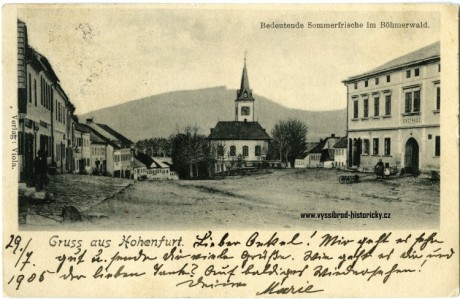 Bedeutende Sommerfrische im Böhmerwald.
Verlag: Viola.
GASTHAUS
www.vyssibrod-historicky.cz
Gruss aus Hohenfurt.
29./7 1905
Lieber Onkel! Mir geht es sehr
gut u. sende dir viele Grüße. Wie geht es dir und
der lieben Tante? Auf baldiges Wiedersehen!
Deine Marie